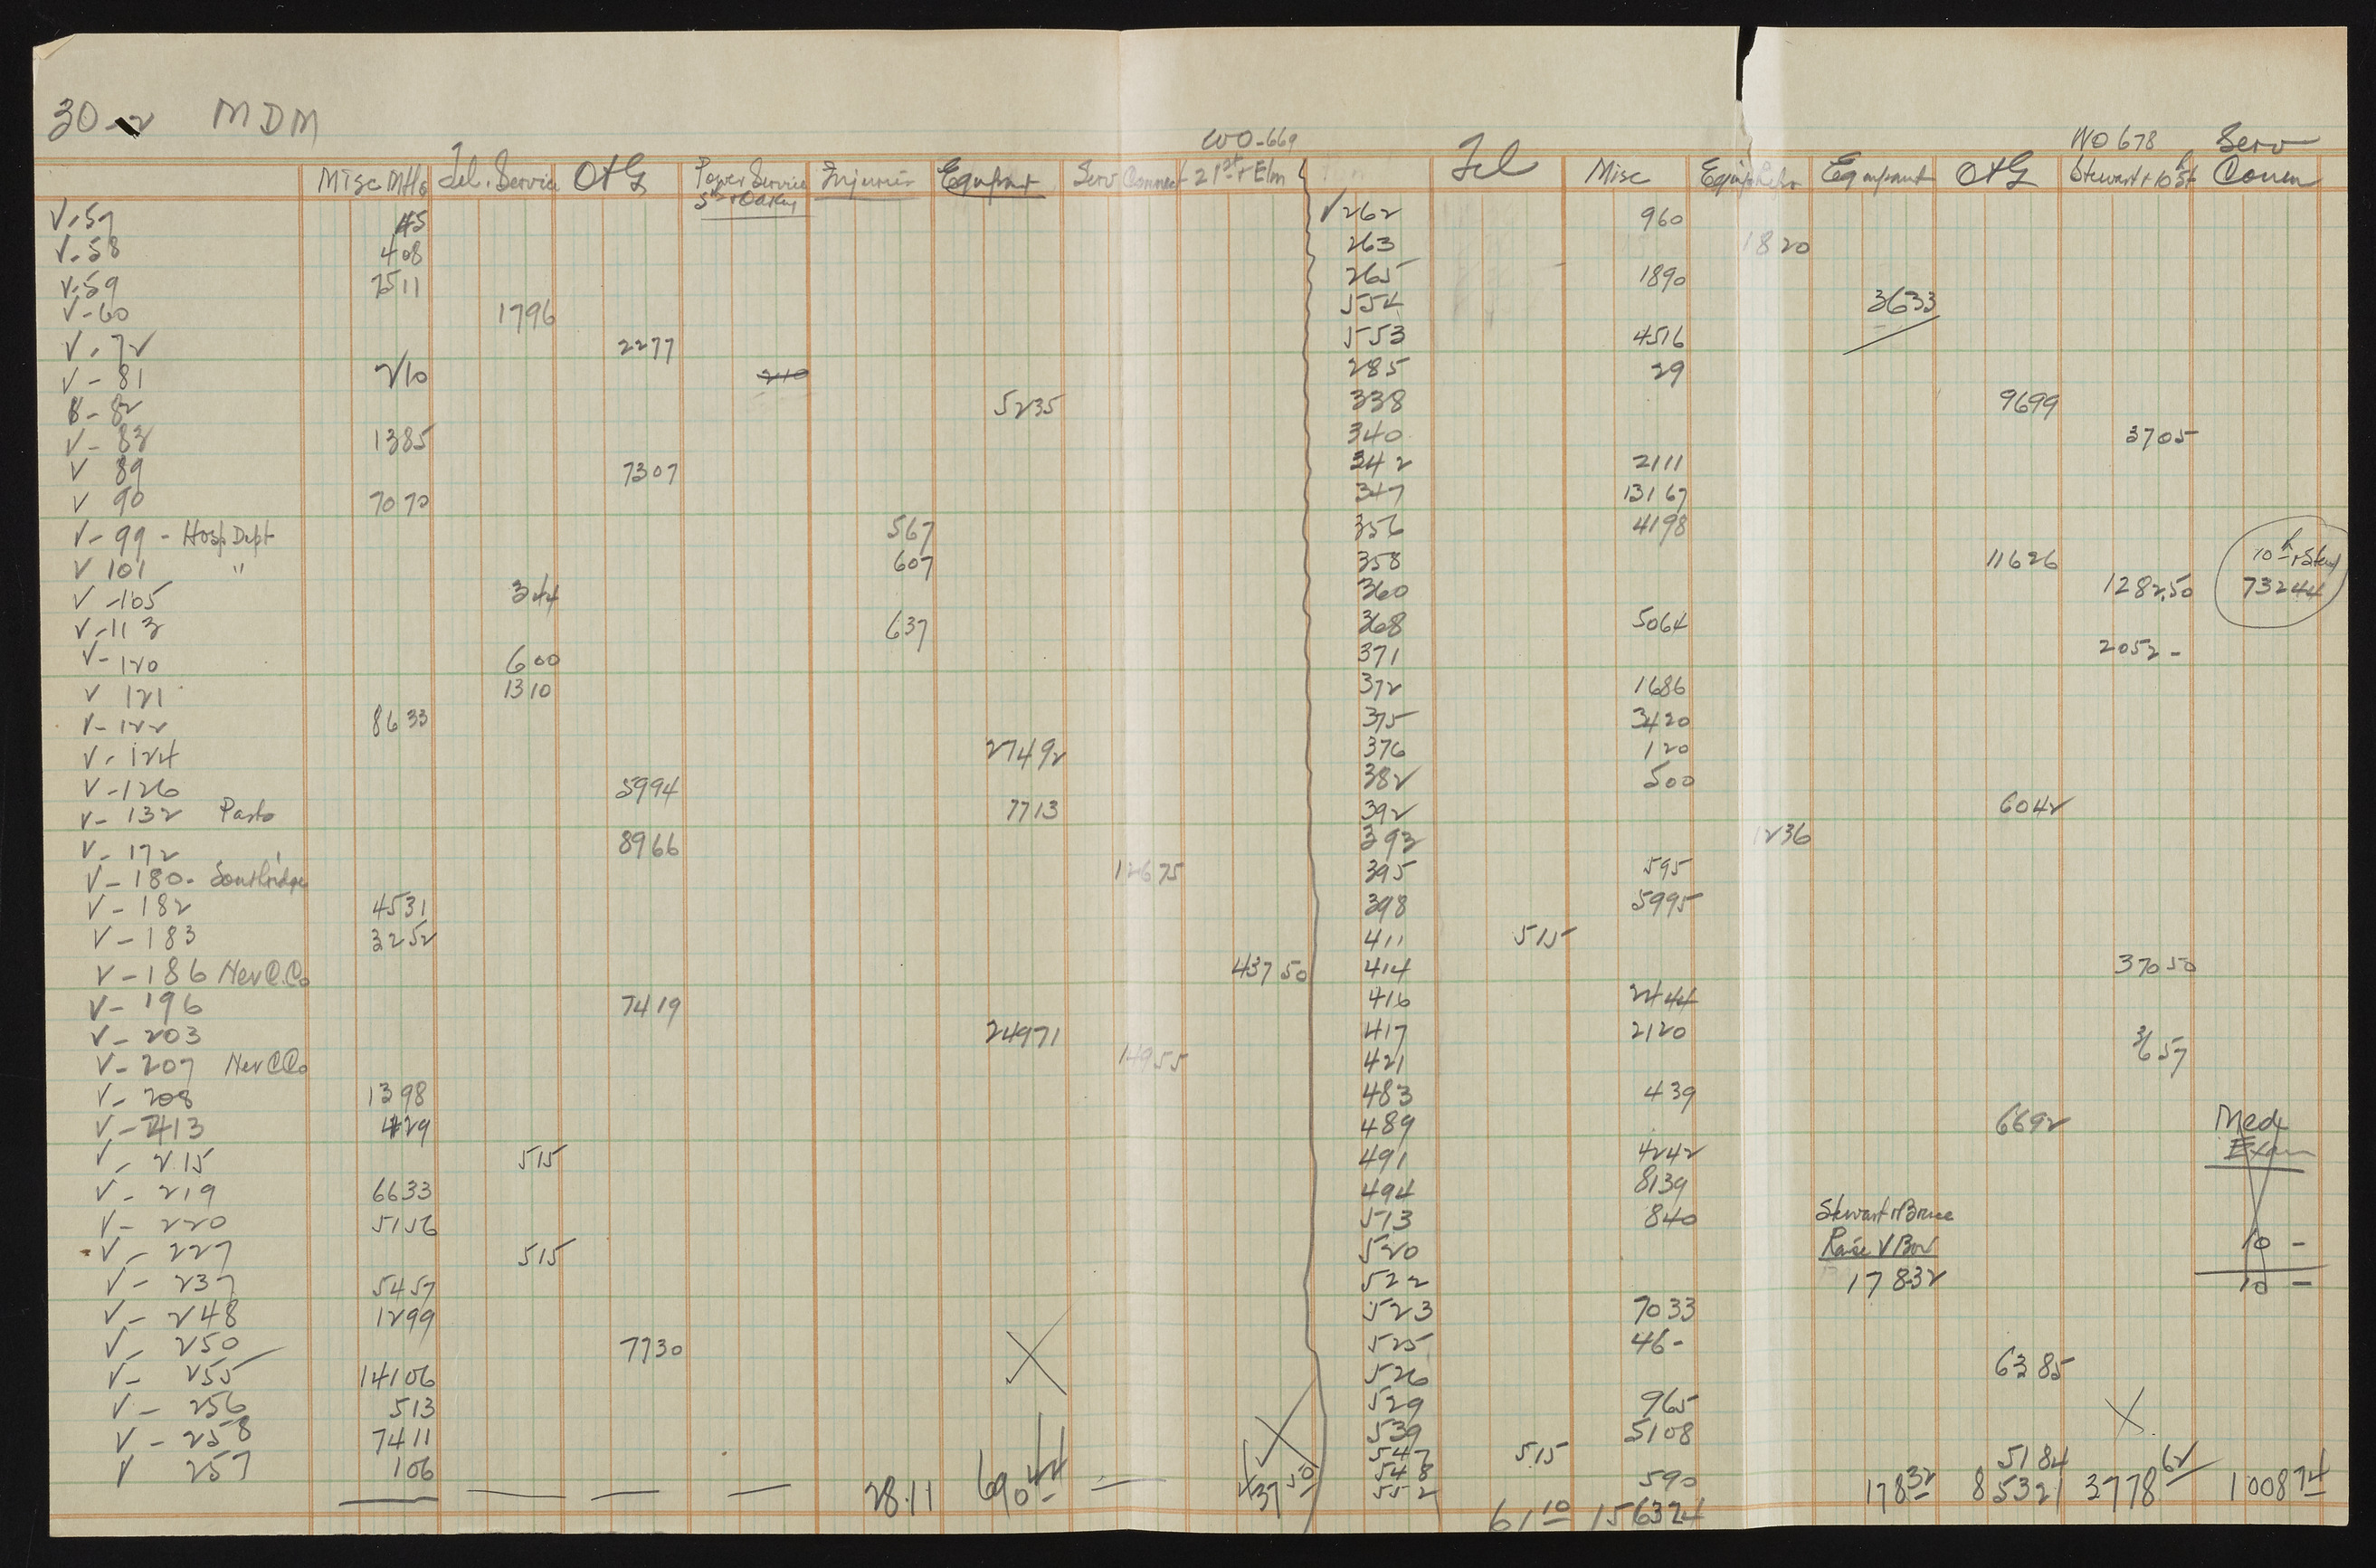 30-2 MDM
WO-669 WO 678 Serv
Misc Mtls Tel. Service O+G Power Service Injuries Equipment Serv Connect 21st + Elm Tel Misc Equip Rehr Equipment O+G Stewart + 10th St Conn
V-57 45 V262 960
V-58 408 263 1820
V-59 2511 265 1890
V-60 1796 554 3633
V-72 2277 553 4516
V-81 210 210 285 29
V-82 5235 338 9699
V-83 1385 340 3705
V 89 7307 342 2111
V 90 7070 347 13167
V-99 - Hosp Dept 567 356 4198
V 101 " 607 358 11626 10th + Stew
V-105 344 360 1282.50 73244
V-113 637 368 5064
V-120 600 371 2052 -
V 121 1310 372 1686
V-122 8633 375 3420
V-124 27492 376 120
V-126 5994 382 500
V-132 Parts 7713 392 6042
V-172 8966 393 1236
V-180- Southridge 12675 395 595
V-182 4531 398 5995
V-183 3252 411 515
V-186 Nev C. Co 437 50 414 370 50
V-196 7419 416 2444
V-203 24971 417 2120
V-207 Nev C Co 14955 421 57
V-208 1398 483 439
V-213 429 489 6692 Med
V-215 515 491 4242 Exam
V-219 6633 494 8139
V-220 5156 513 840 Stewart + Bruce
V-227 515 520 Raise V Box 10 -
V-237 5457 522 17832 10 -
V-248 1299 523 7033
V-250 7730 525 46-
V-255 14106 526 6385
V-256 513 529 965
V-258 7411 539 5108
V 257 106 547 515 5184
548 590
28.11 690 44 437 50 552 178 32 85321 3778 62 1008 74
61 10 156324